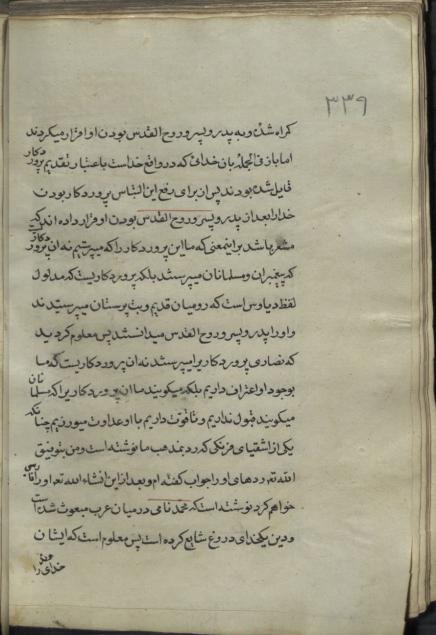 ۳۳۹
کمراه شده وبه پدر وپسر وروح القدس بودن او اقرار میکردند
اما باز فی الجمله بان خدائی که در واقع خداست باعتبار تقدیم پروردکار
قایل شده بودند پس از برای رفع این التباس پروردکار بودن
خدا را بعد از پدر وپسر وروح القدس بودن او قرار داده اند که
مشعر باشد براینمعنی که ما این پروردکار را که میپرستیم نه ان پروردکاریست
که پیغمبران ومسلمانان میپرستند بلکه پروردکاریست که مدلول
لفظ دیاوس است که رومیان قدیم وبت پرستان میپرستیدند
واورا پدر وپسر وروح القدس میدانستند پس معلوم کردید
که نصاری پروردکاریرا میپرستند نه ان پروردکاریست که ما
بوجود او اعتراف داریم بلکه میکویند ما ان پروردکاریرا که مسلمانان
میکویند قبول نداریم وتا قوت داریم با او عداوت میورزیم چنانکه
یکی از اشقیای فرنکی که رد مذهب ما نوشته است ومن بتوفیق
الله تع ردهای اورا جواب کفته ام وبعد از این انشاء الله تع اورا فارسی
خواهم کرد نوشته است که محمد نامی درمیان عرب مبعوث شده است
ودین یکخدای دروغ شایع کرده است پس معلوم است که ایشان
خدای را